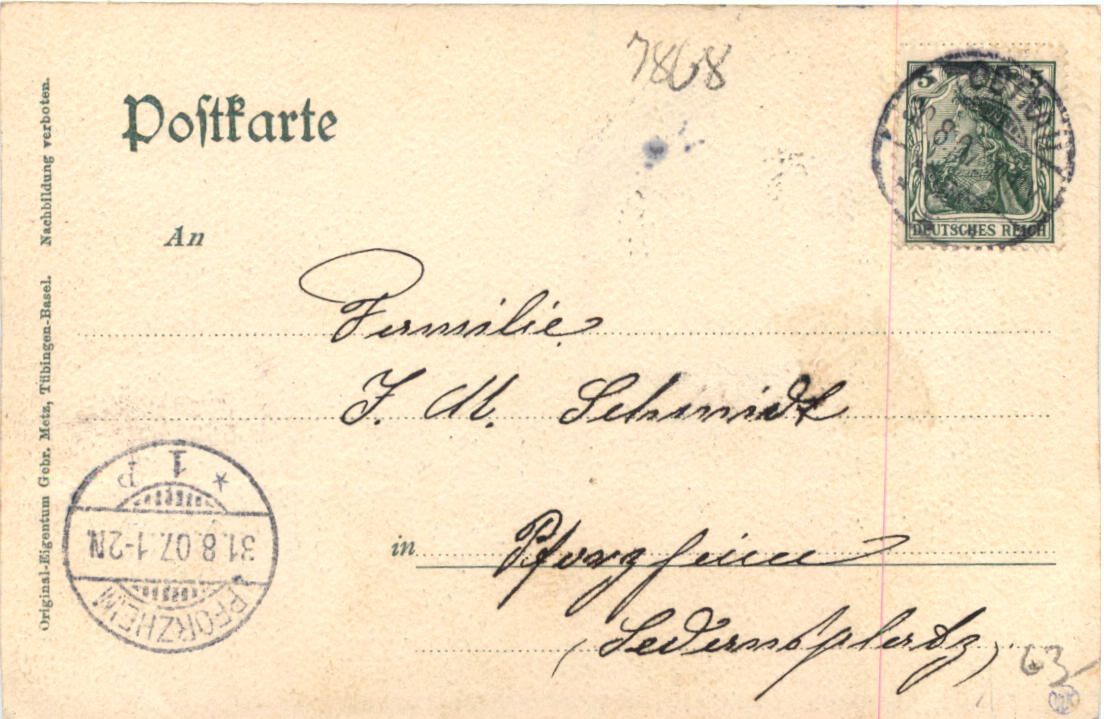 7868
Postkarte
5 5
DEUTSCHES REICH
An
Familie
J. M. Schmidt
in Pforzheim
(Sedansplatz)
63-
PFORZHEIM
31.8.07.1-2N.
* 1 P
Original-Eigentum Gebr. Metz, Tübingen-Basel. Nachbildung verboten.